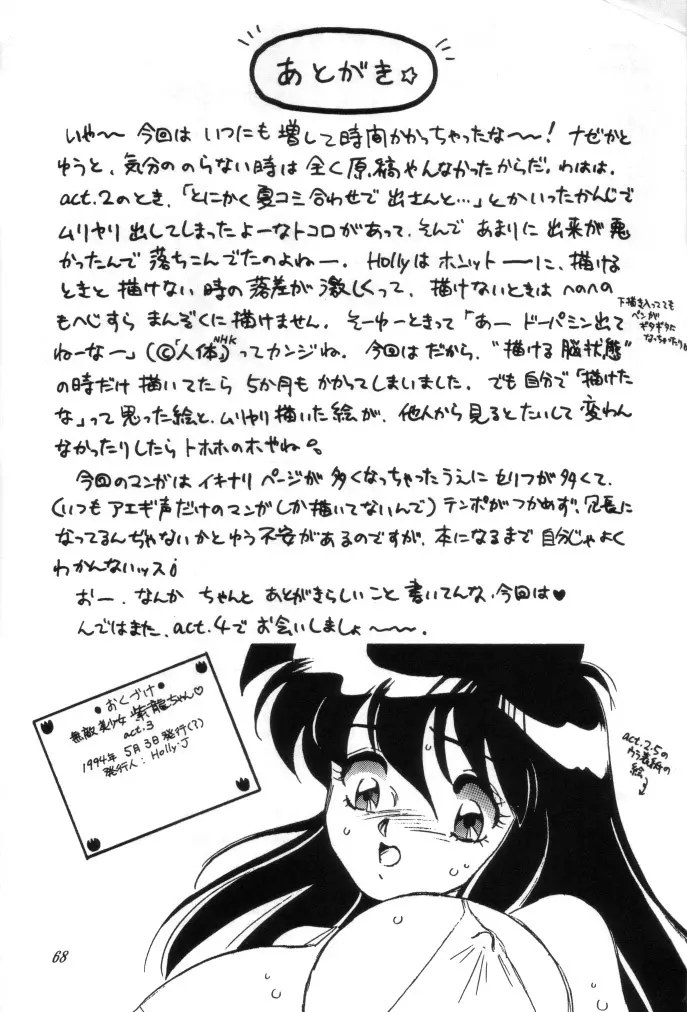 あとがき☆
いや〜〜 今回は いつにも 増して時間かかっちゃったな〜〜! ナゼかと
ゆうと、気分の のらない時は 全く原稿やんなかったからだ。わはは。
act.2のとき、「とにかく夏コミ合わせで 出さんと…」とかいったかんじで
ムリヤリ 出してしまったよーなトコロがあって、そんで あまりに 出来が 悪
かったんで 落ちこんでたのよねー。 Hollyは ホニットーーに、描ける
ときと 描けない 時の落差が 激しくって、描けないときは へのへの
もへじすら まんぞくに描けません。そーゆーときって「あー ドーパミン出て
ねーなー」(©「人体」NHK)ってカンジね。今回は だから、"描ける 脳状態"
の時だけ 描いてたら 5か月も かかってしまいました。でも自分で「描けた
な」って思った絵と、ムリヤリ描いた絵が、他人から見るとたいして 変わん
なかったりしたら トホホのホやね。
今回のマンガは イキナリ ページが 多くなっちゃったうえに セリフが多くて、
(いつも アエギ声だけのマンガしか描いてないんで)テンポがつかめず、冗長に
なってるんぢゃないかとゆう不安があるのですが、本になるまで 自分じゃよく
わかんないッス
おー、なんか ちゃんと あとがきらしいこと 書いてんな、今回は♥
んではまた、act.4で お会いしましょ〜〜〜。
下描き入ってても
ペンが
ギタギタに
なっちゃったり
●おくづけ●
無敵美少女 紫龍ちゃん♡
act.3
1994年 5月3日発行(?)
発行人:Holly.J
act.2.5の
ウラ表紙の
絵
68